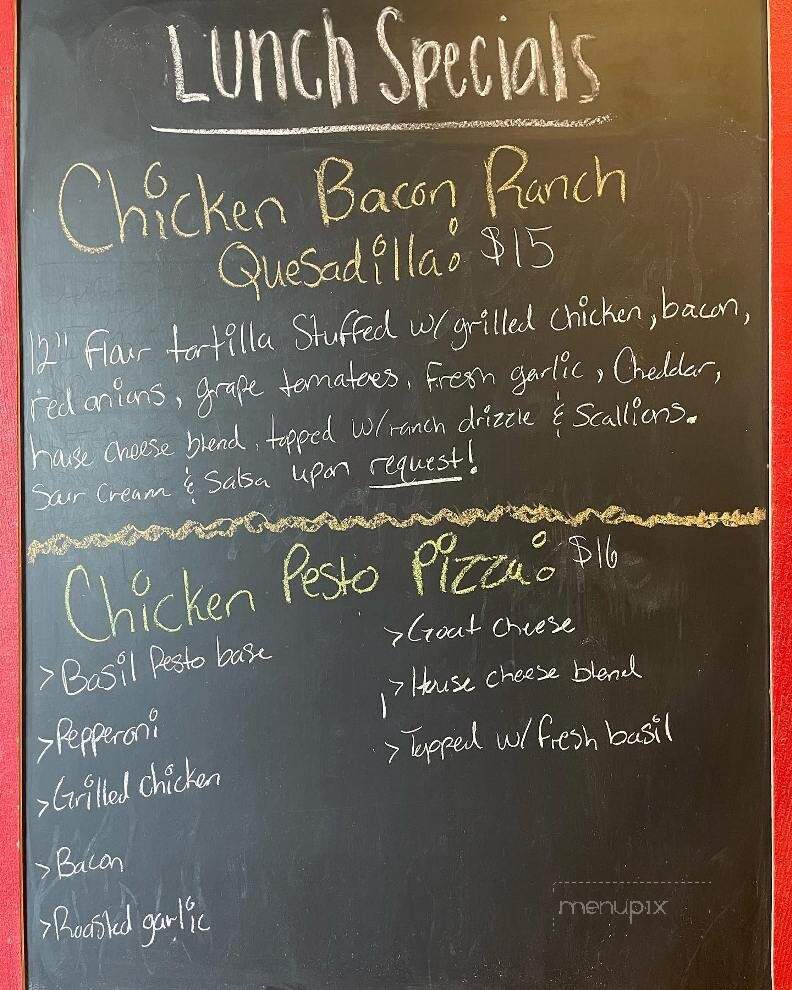 Lunch Specials
Chicken Bacon Ranch
Quesadilla: $15
12" flour tortilla Stuffed w/ grilled chicken, bacon,
red onions, grape tomatoes, fresh garlic, Cheddar,
house cheese blend, topped w/ ranch drizzle & Scallions.
Sour Cream & Salsa upon request!
Chicken Pesto Pizza: $16
>Basil Pesto base
>Pepperoni
>Grilled chicken
>Bacon
>Roasted garlic
>Goat cheese
>House cheese blend
>Topped w/ fresh basil
menupix